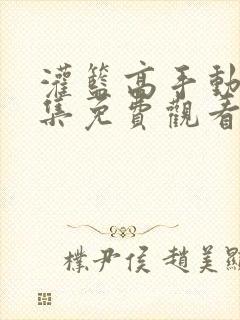 灌籃高手動
集免費觀看
樸尹侯 趙美顯